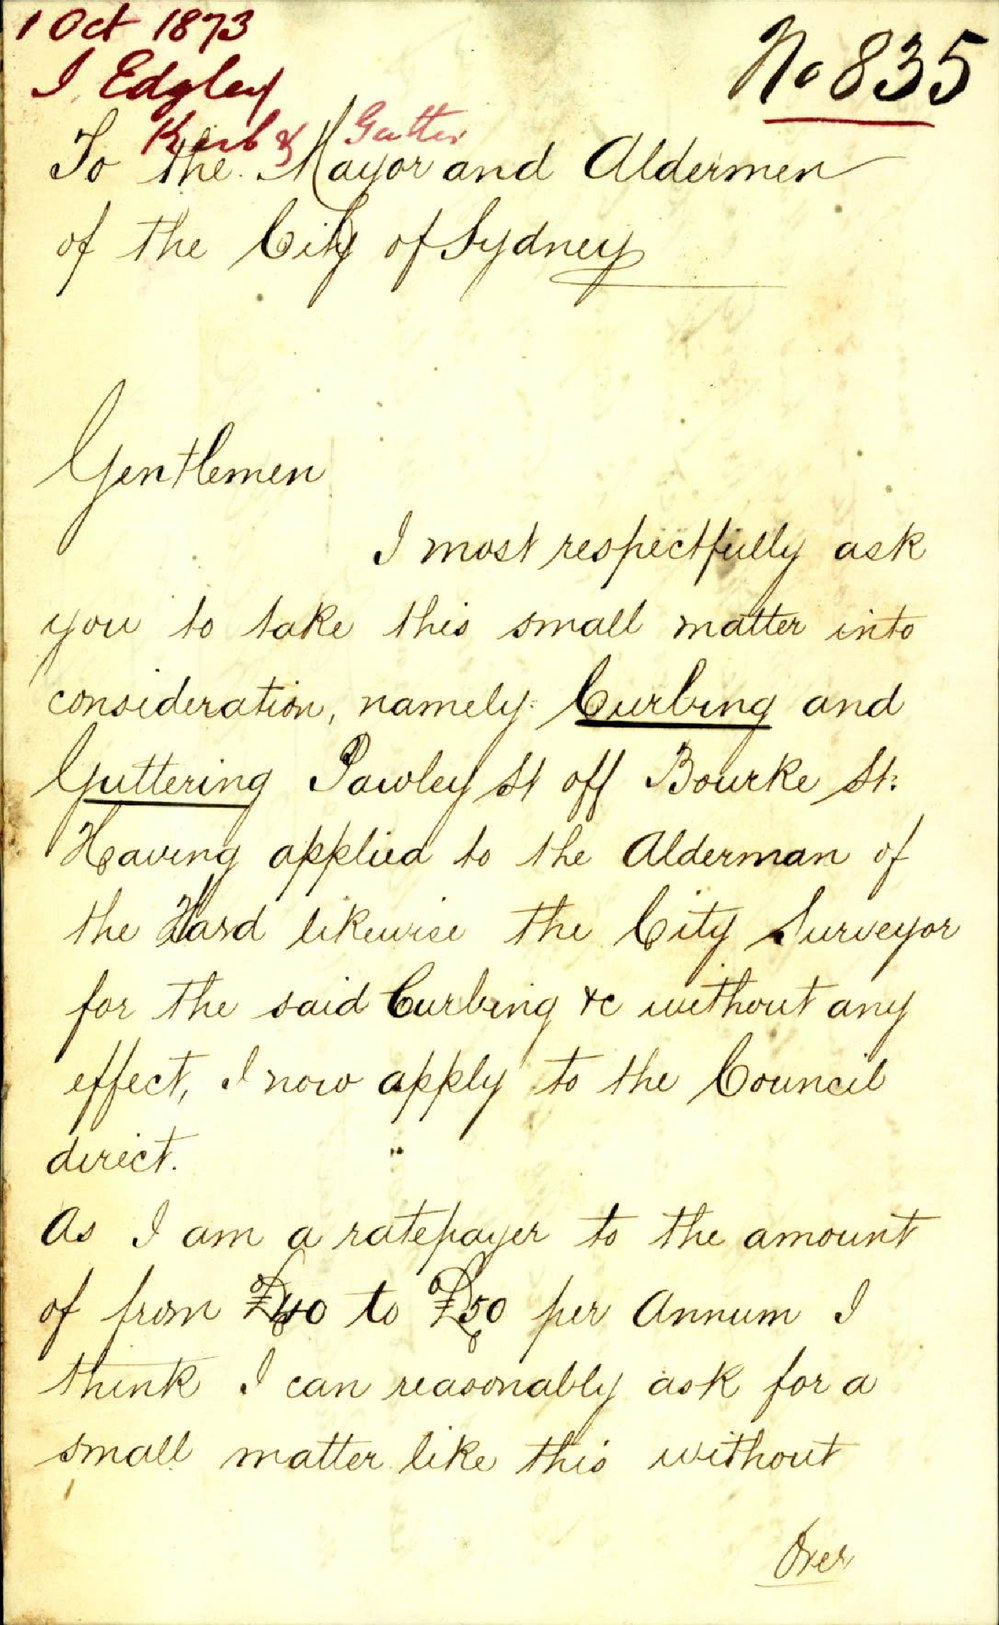 1 Oct 1873
No 835
J Edgley
Kerb & Gutter
To the Mayor and Aldermen
of the City of Sydney
Gentlemen
I most respectfully ask
you to take this small matter into
consideration, namely: Curbing and
Guttering Pawley St off Bourke St:
Having applied to the Alderman of
the Ward likewise the City Surveyor
for the said Curbing &c without any
effect, I now apply to the Council
direct.
As I am a ratepayer to the amount
of from £40 to £50 per Annum I
think I can reasonably ask for a
small matter like this without
Over